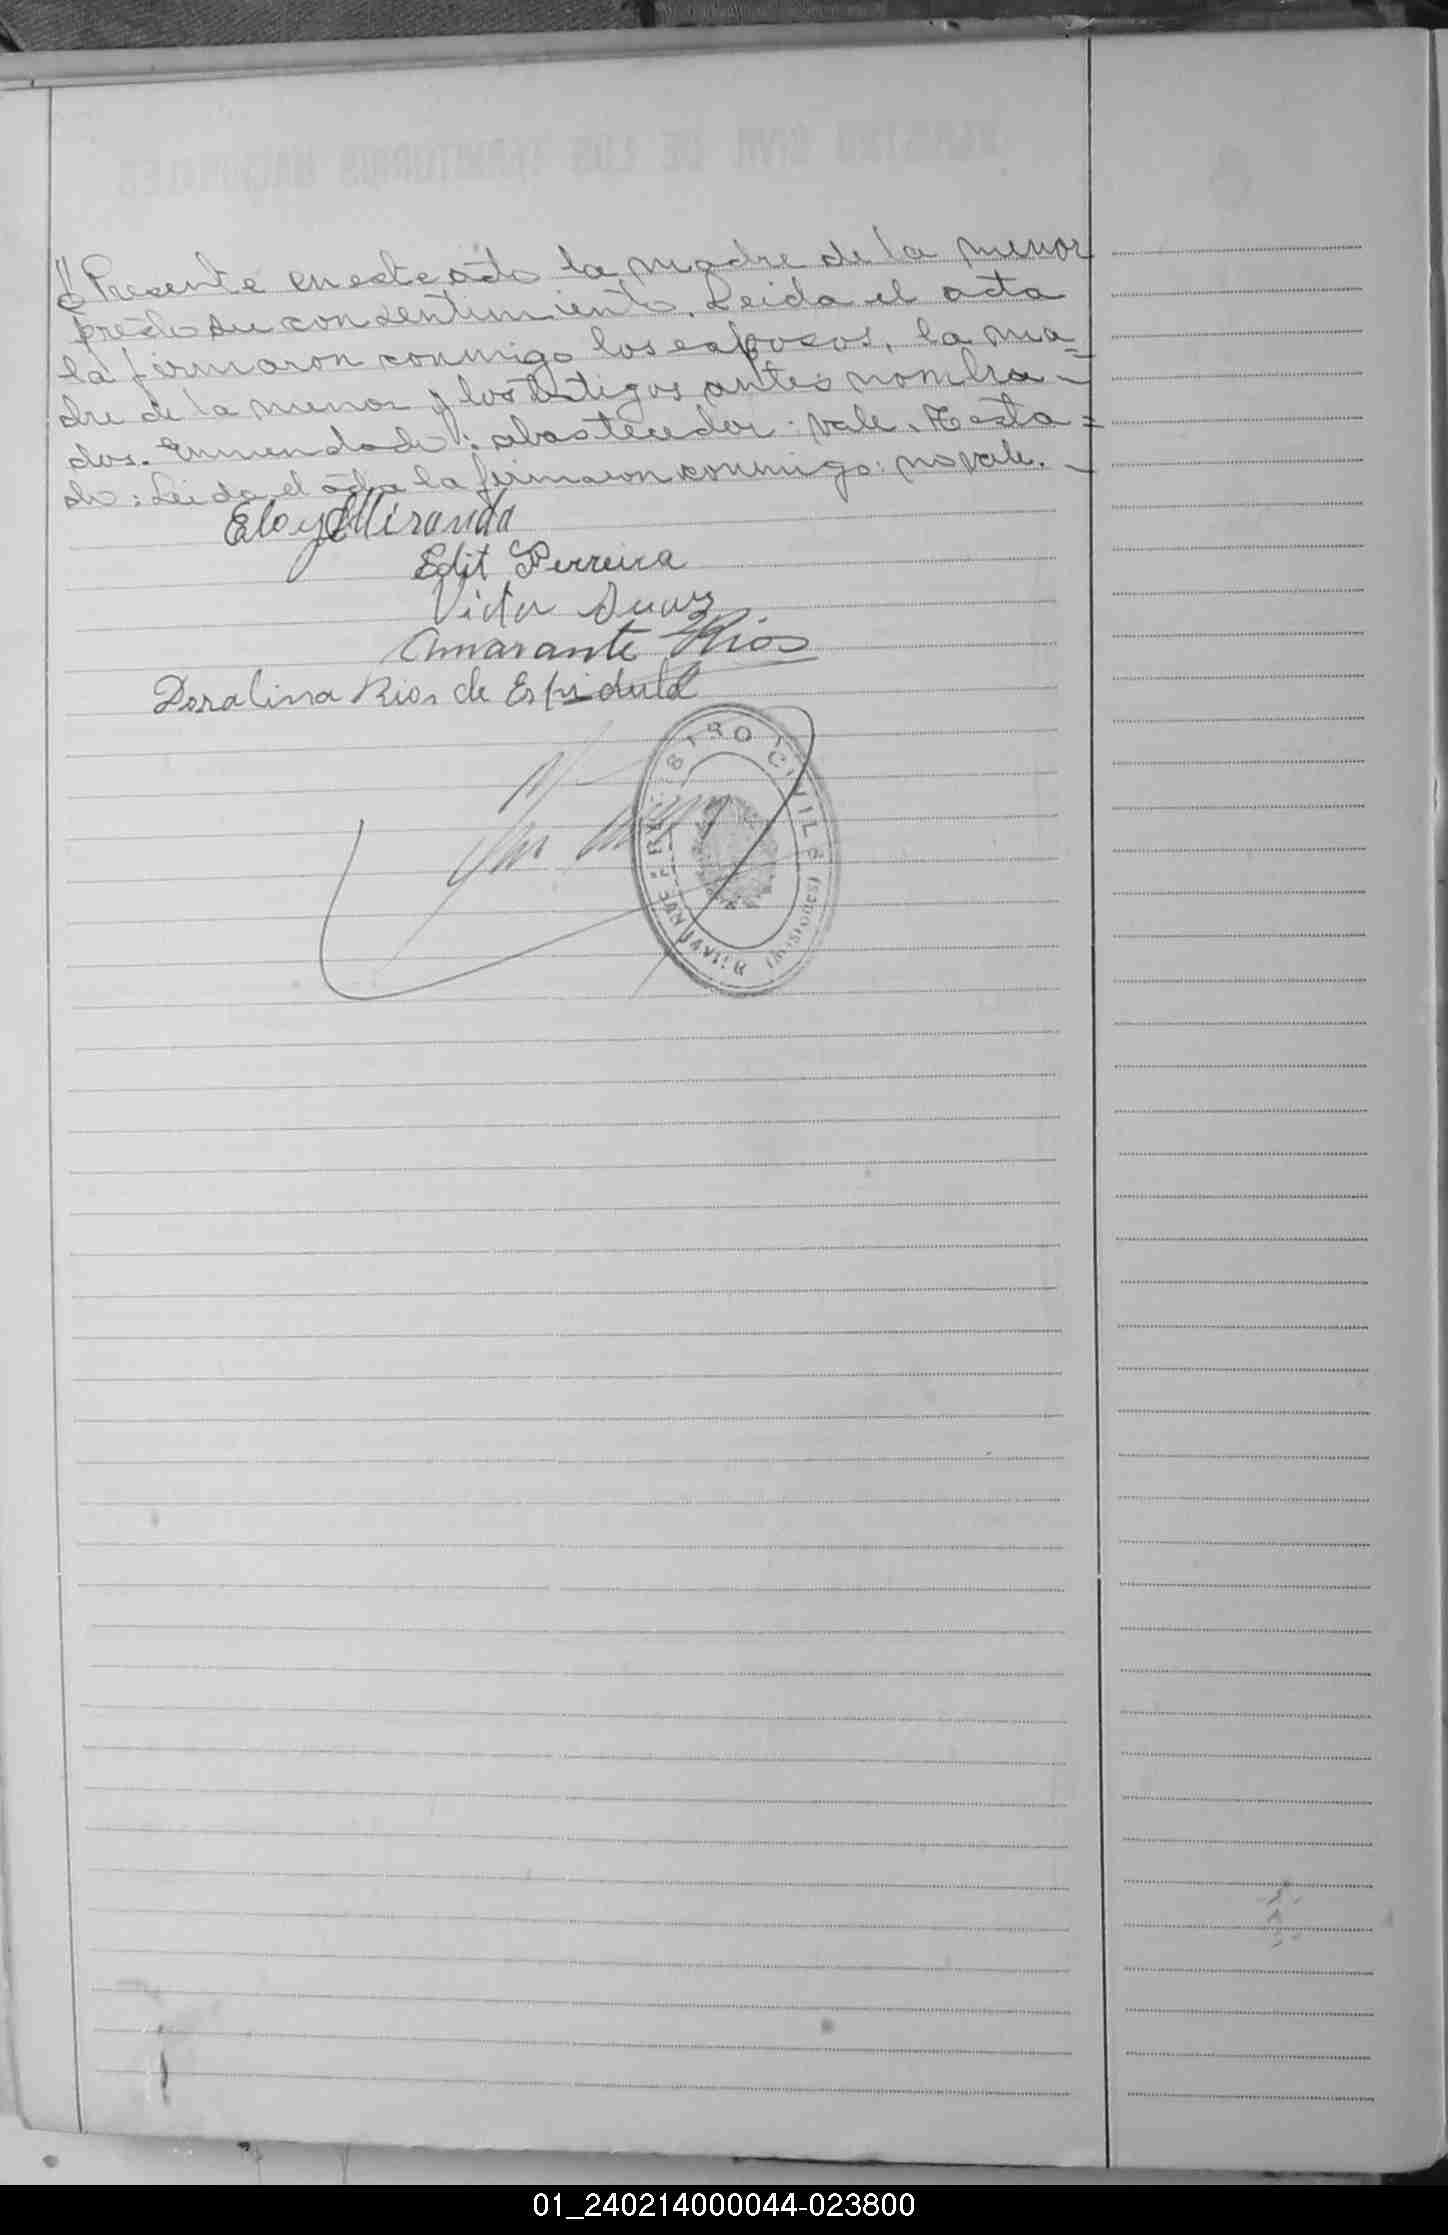 Presente en este acto la madre de la menor
prestó su consentimiento. Leida el acta
la firmaron conmigo los esposos, la ma=
dre de la menor y los testigos antes nombra-
dos. Enmendado: abastecedor: vale. Testa=
do: Leida el acta la firmaron conmigo: no vale. -
Eloy Miranda
Edit Perreira
Victor
Amarante Rios
Doralina Rios de Espindula
REGISTRO CIVIL
SAN JAVIER (Misiones)
01_240214000044-023800